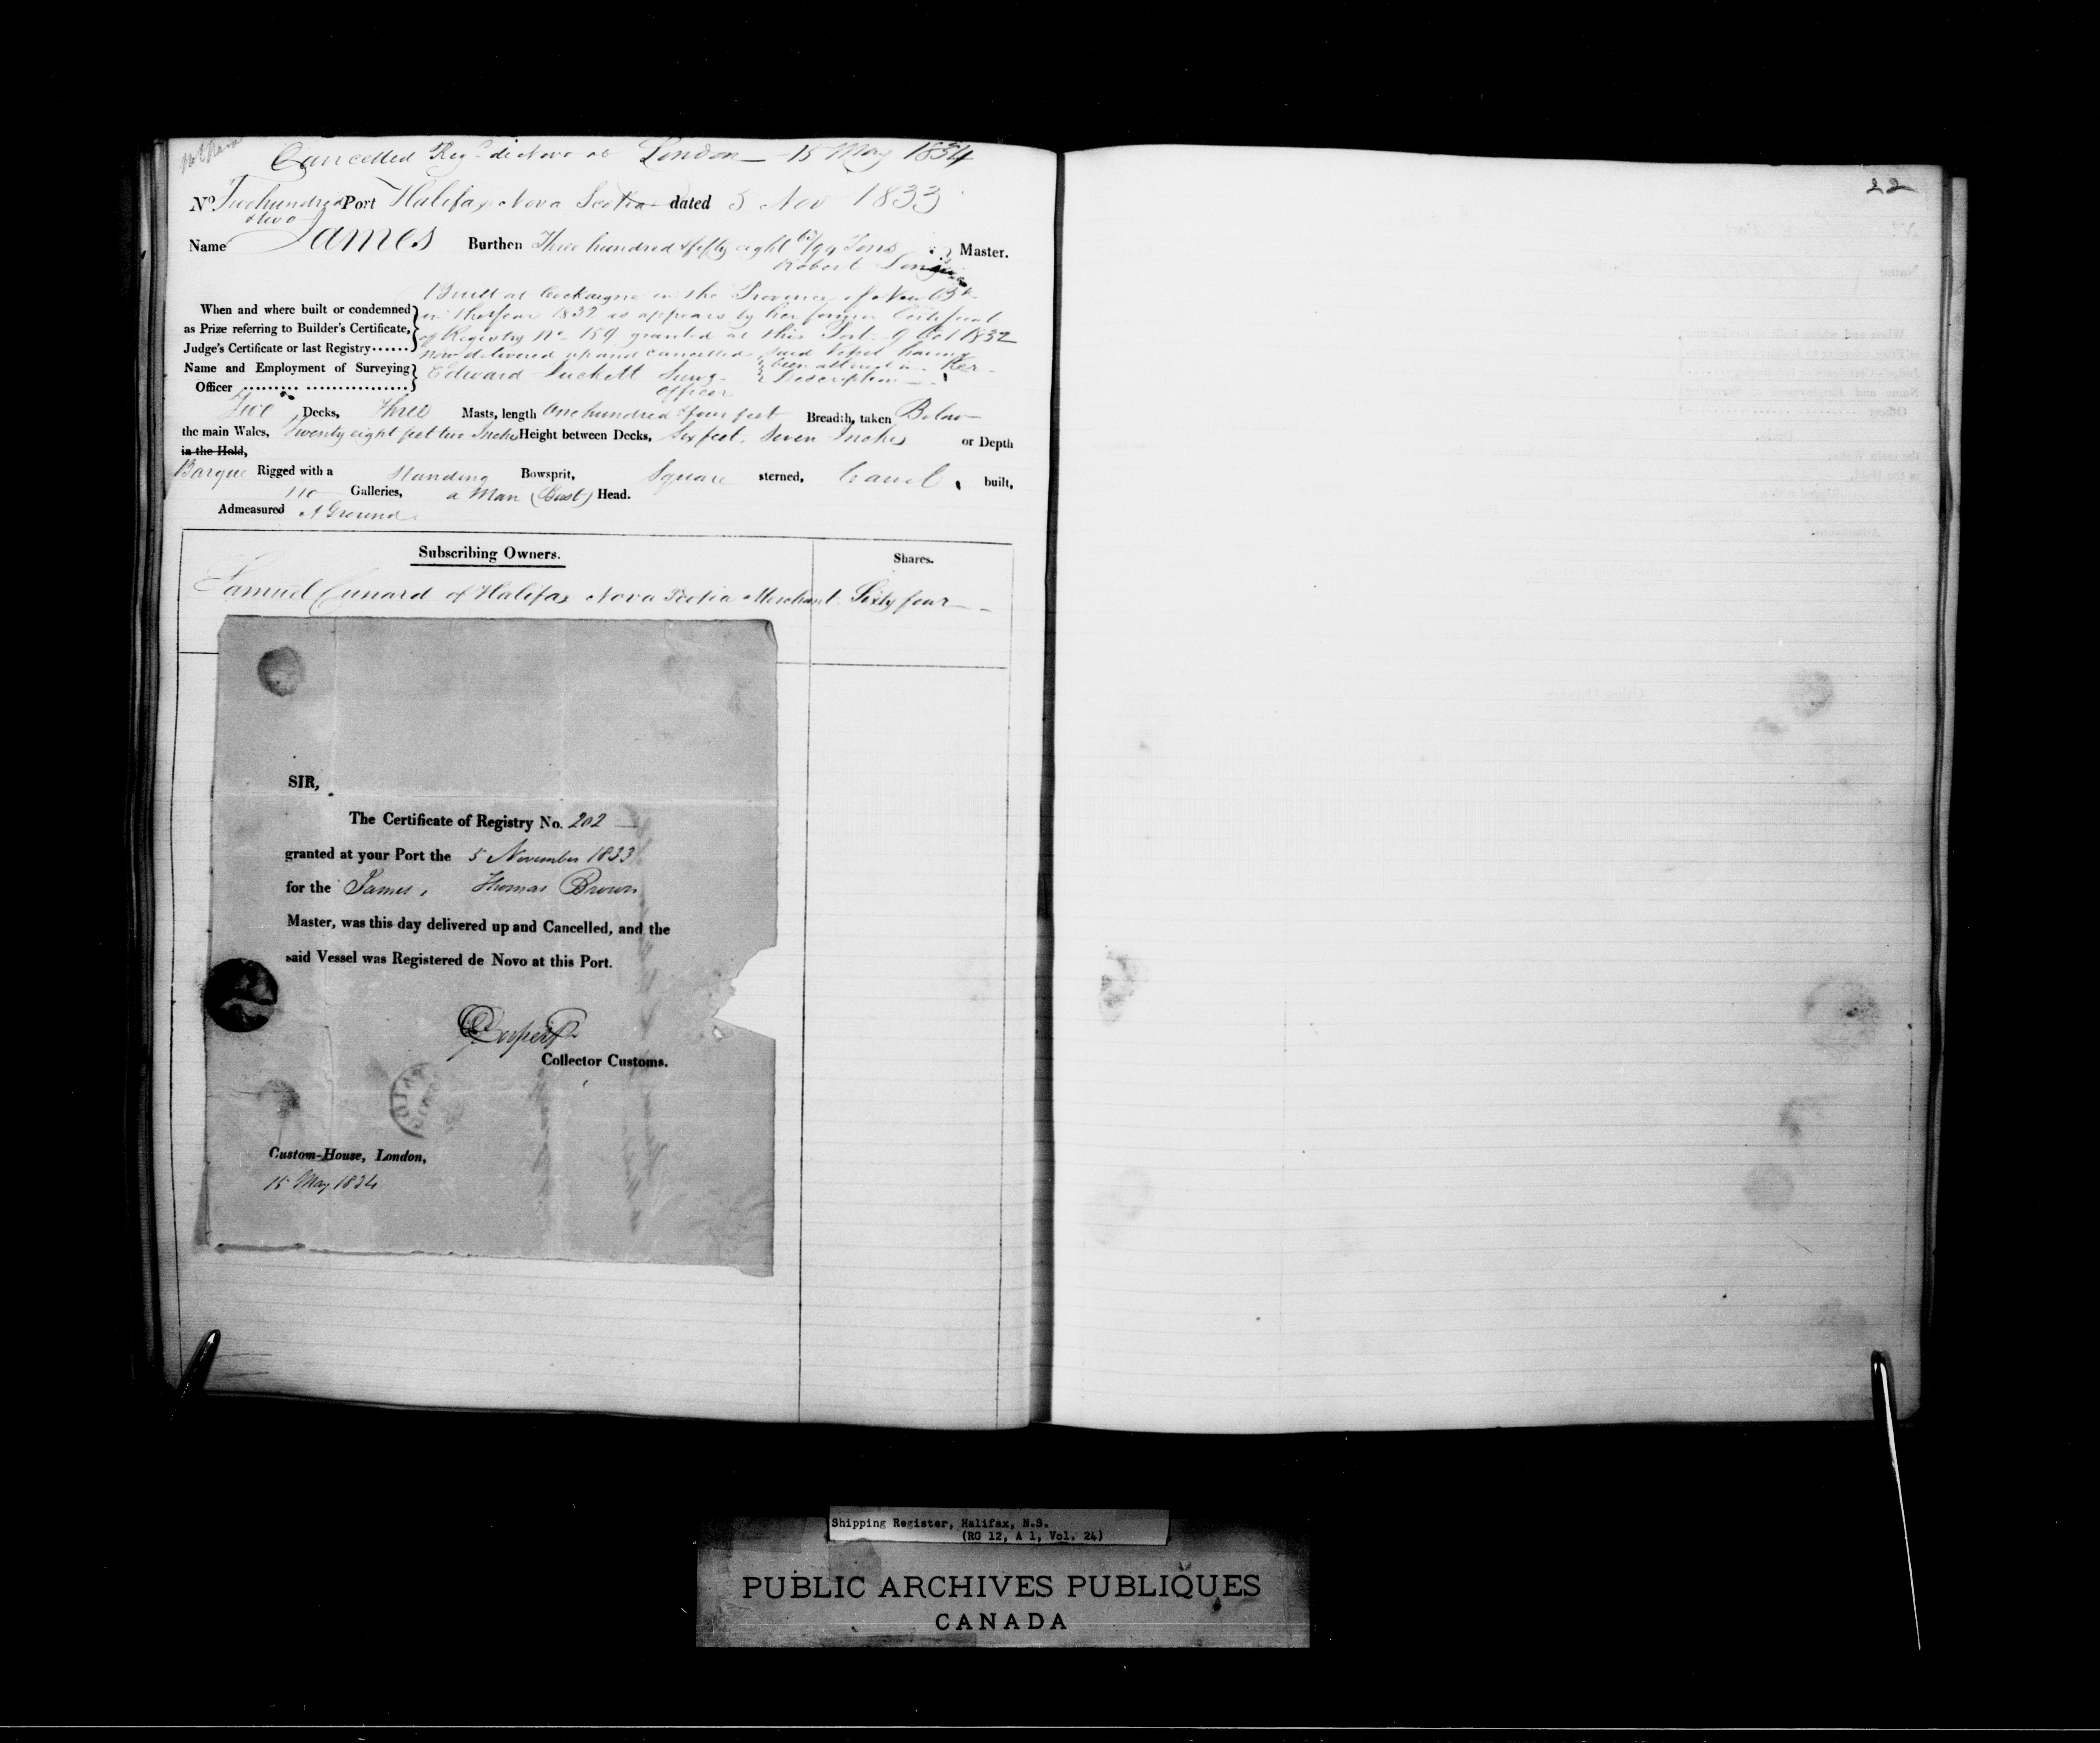 Cancelled Reg de Novo at London 15 May 1834
No Two hundred Port Halifax Nova Scotia dated 5 Nov 1833
& two
Name James Burthen Three hundred & fifty eight /94 Tons Master.
Robert
Built at Cockaigne in the Province of New Bk
When and where built or condemned
in the Year 1832 as appears by her former Certificate
as Prize referring to Builder's Certificate,
of Registry No 159 granted at this Port 9 Oct 1832
Judge's Certificate or last Registry......
now delivered up and cancelled said Vessel having
been altered in Her
Name and Employment of Surveying Edward Survg
Description
Officer ......... .................
Officer
Two Decks, Three Masts, length One hundred & four feet Breadth, taken Below
the main Wales, Twenty eight feet two Inches Height between Decks, Six feet, Seven Inches or Depth
in the Hold,
Barque Rigged with a Standing Bowsprit, Square sterned, Carvel built,
no Galleries, a Man (Bust) Head.
Admeasured A Ground
Subscribing Owners. Shares.
Samuel Cunard of Halifax Nova Scotia Merchant Sixty four
SIR,
The Certificate of Registry No. 202
granted at your Port the 5 November 1833
for the James, Thomas Brown
Master, was this day delivered up and Cancelled, and the
said Vessel was Registered de Novo at this Port.
Collector Customs.
Custom-House, London,
15 May 1834
22
Shipping Register, Halifax, N.S.
(RG 12, A 1, Vol. 24)
PUBLIC ARCHIVES PUBLIQUES
CANADA